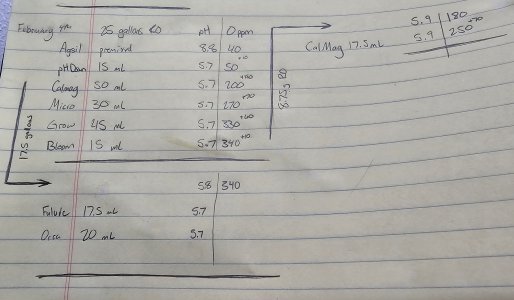 February 4th 25 gallons RO pH 0 ppm
Agsil premixed 8.8 40
pHDown 15 ml 5.7 50 +10
Calmag 50 ml 5.7 200 +150
Micro 30 ml 5.7 270 +70
Grow 45 ml 5.7 330 +60
Bloom 15 ml 5.7 340 +10
17.5 gallons
5.8 340
Fulvic 17.5 ml 5.7
Orca 20 ml 5.7
8.75g RO
5.9 180
CalMag 17.5 ml 5.9 250 +70